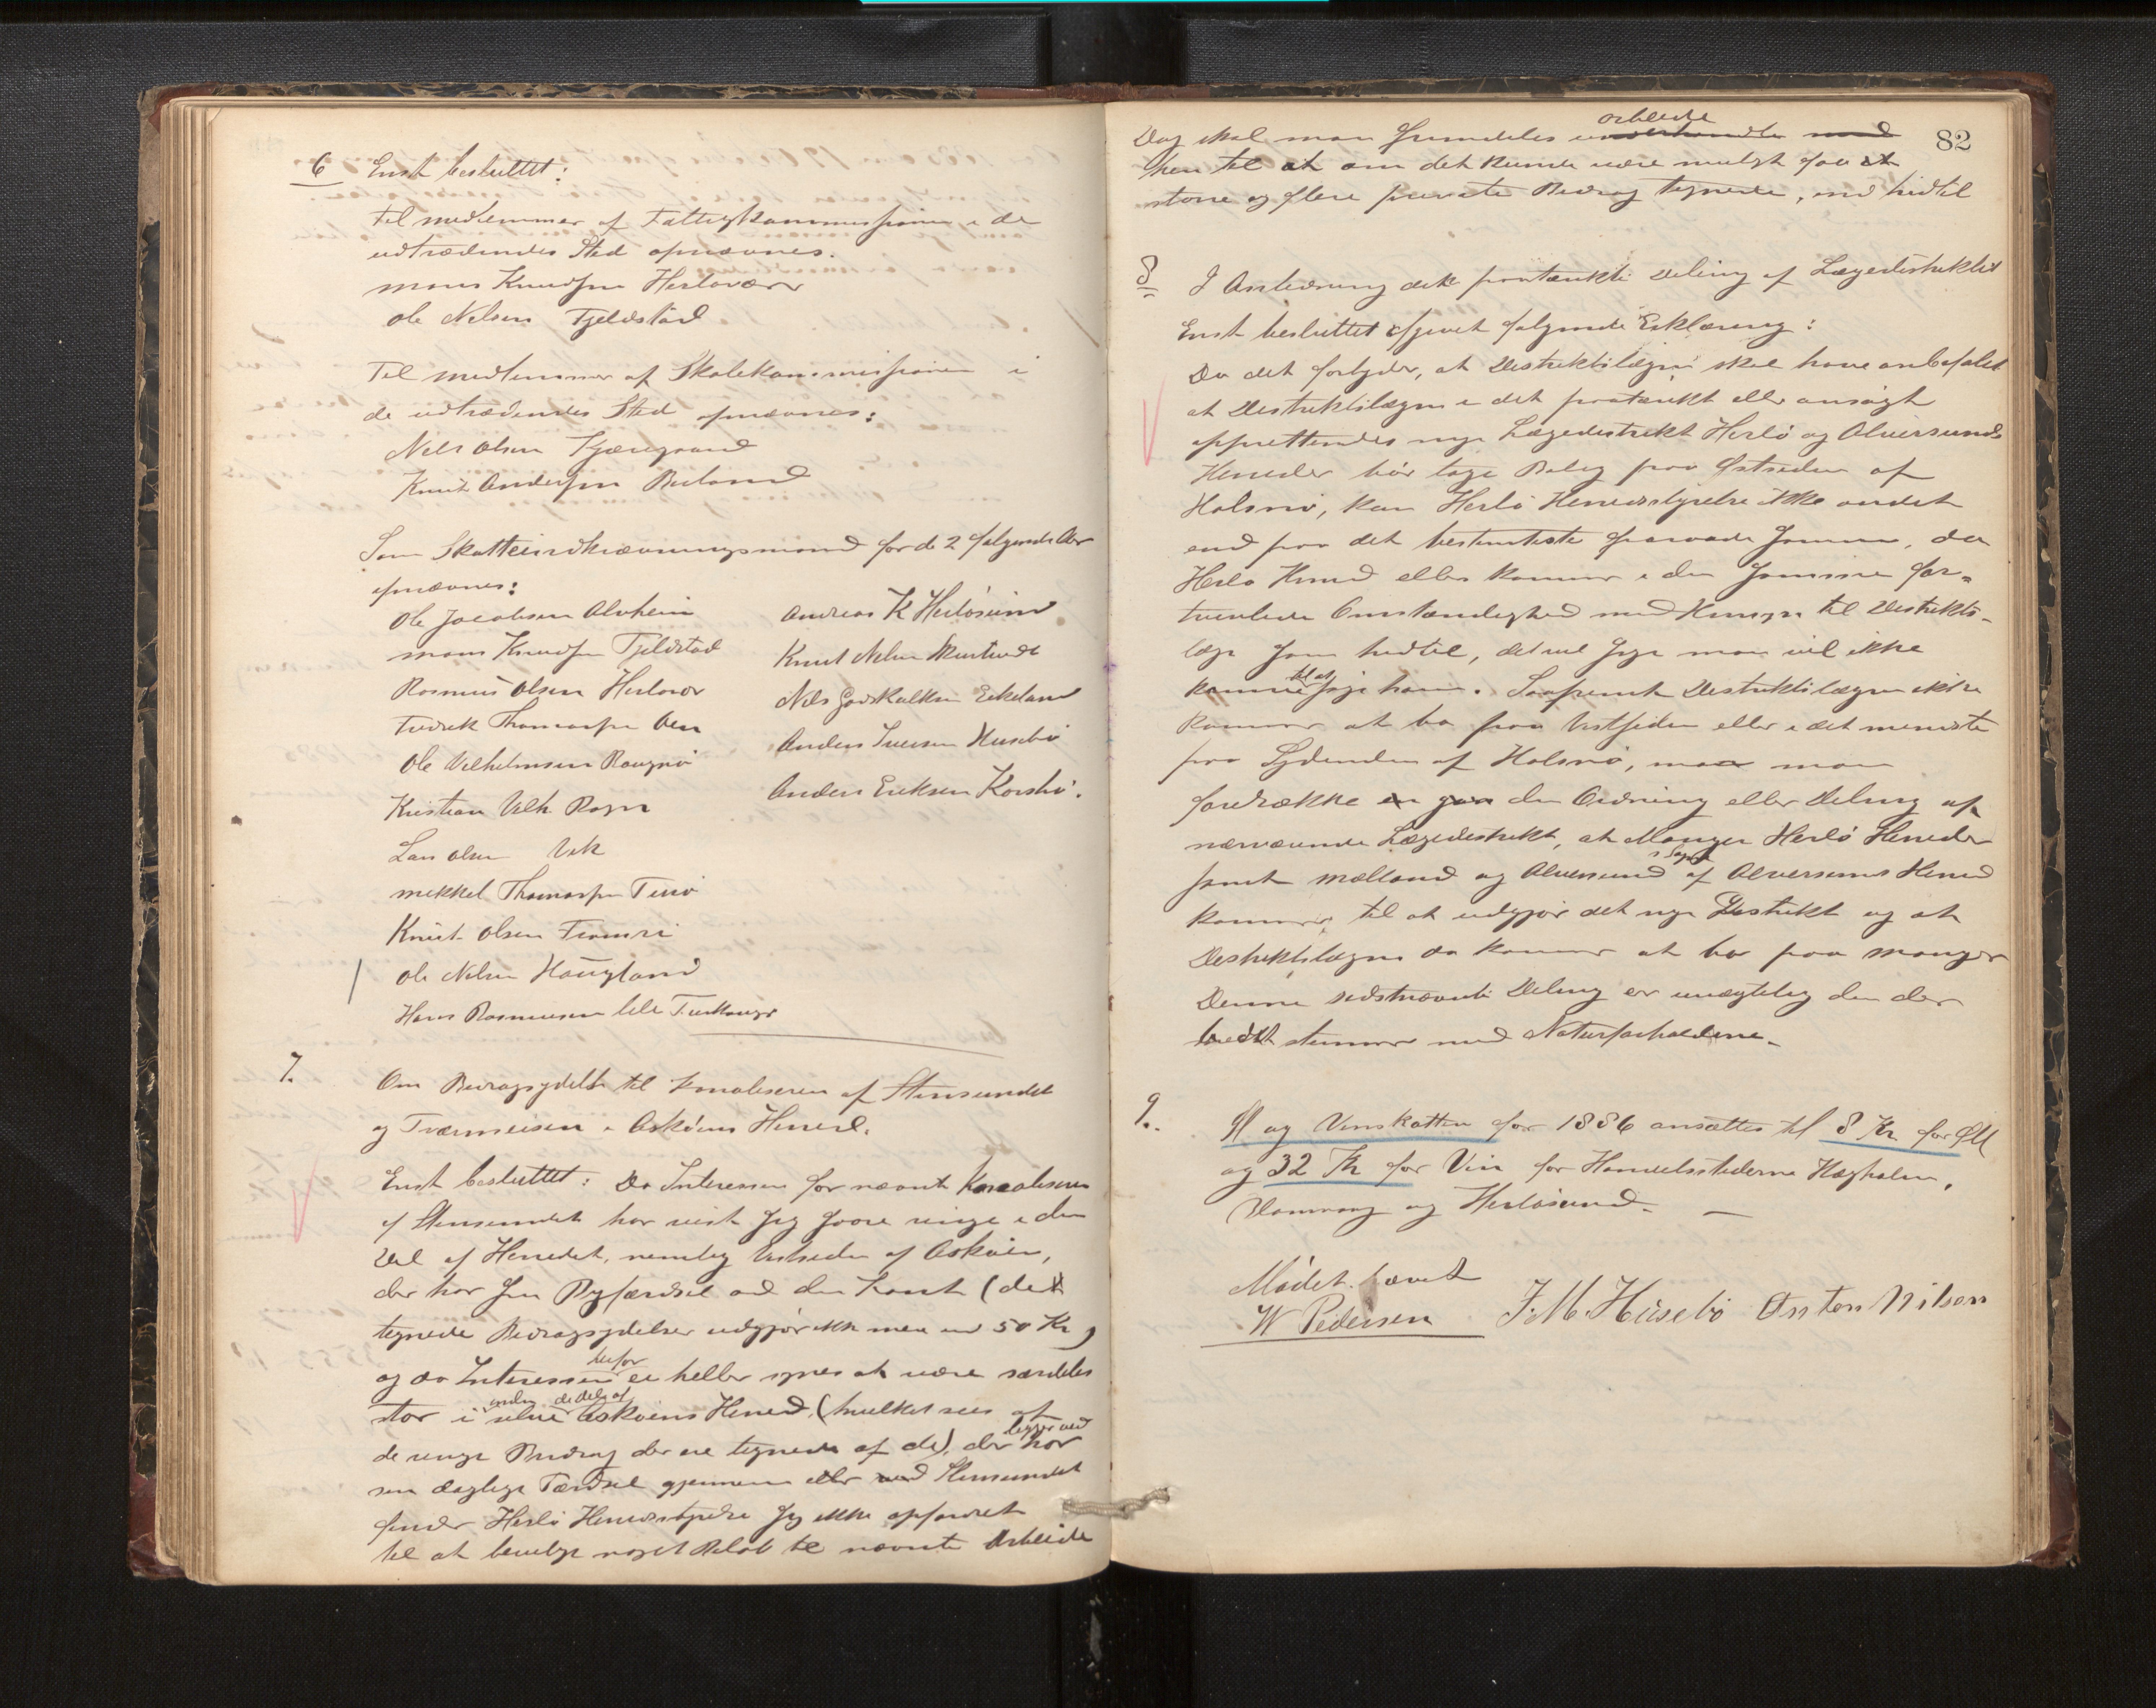 6 Enst besluttet:
til medlemmer af Fattigkommissionen i de
udtrædendes Sted opnævnes.
Mons Knudsen Herlovær
Ole Nelsen Fjeldstad
Til medlemmer af Skolekommissionen i
de udtrædendes Sted opnævnes:
Nels Olsen
Knut Andersen Buland
Som Skatteindkrævningsmænd for de 2 følgende Aar
opnævnes:
Ole Jacobsen Alvheim
Mons Knudsen Fjeldstad
Rasmus Olsen Herlovær
Fredrik Thomassen Oen
Ole Vilhelmsen Rougnø
Kristian Vilh. Rogn
Lars Olsen Vik
Mikkel Thomassen Turø
Knut Olsen
Ole Nelsen Haugland
Hans Rasmussen lille Turkauge
Andreas K Herløsund
Knut Nelsen
Nils Godskalksen Eikeland
Anders Iversen Husebø
Anders Eriksen Korsbø.
7. Om Bidragsydelse til Kanaliseren af Stensundet
og Tværmeisen i Askøens Herred.
Enst besluttet: Da Interessen for nævnte Kanaliseren
af Stensundet har vist sig saare ringe i den
Del af Herredet, nemlig Vestsiden af Askøen,
der har sin Byfærdsel ad den Kant (det
tegnede Bidragsydelser udgjør ikke mer end 50 Kr)
og da Interessen herfor ei heller synes at være særdeles
stor i selve inden de dele af Askøens Herred, (hvilket sees af
de ringe Bidrag der ere tegnede af de), der har ligger ved
sin daglige Færdsel gjennem eller ved Stensundet
finder Herlø Herredsstyrelse sig ikke opfordret
til at bevilge noget Beløb til nævnte Arbeide
82
Dog skal man fremdeles underhandle med arbeide
hen til at om det kunde være muligt faa at
større og flere private Bidrag tegnede, end hidtil
8 I Anledning den paatænkte Deling af Lægedistriktet
Enst besluttet afgivet følgende Erklæring:
Da det forlyder, at Distriktslægen skal have anbefalet
at Distriktslægen i det paatænkt eller ansøgt
opprettendes nye Lægedistrikt Herlø og Alversunds
Herreder bør tage Bolig paa Østsiden af
Holsnø, kan Herlø Herredsstyrelse ikke andet
end paa det bestemteste fraraade samme, da
Herlø Herred ellers kommer i den samme for-
tvivlede Omstændighed med Hensyn til Distrikts-
læge som hidtil, det vil sige man vil ikke
komme til at søge ham. Saafremt Distriktslægen ikke
kommer at bo paa Vestsiden eller i det mindste
paa Sydenden af Holsnø, maa man
foretrække en gaa den Ordning eller Deling af
nærværende Lægedistrikt, at Manger Herlø Herreder
samt Mælland og Alversund Sogn af Alversunds Herred
kommer til at udgjøre det nye Distrikt og at
Distriktslægen da kommer at bo paa Manger
Denne sidstnævnte Deling er unægtelig den der
bedst stemmer med Naturforholdene.
9. Øl og Vinskatten for 1886 ansættes til 8 Kr for Øll
og 32 Kr for Vin for Handelsstederne Hægholmen,
Blomvaag og Herløsund. —
Mødet hævet
W Pedersen J. M. Husebø Anton Nilsen